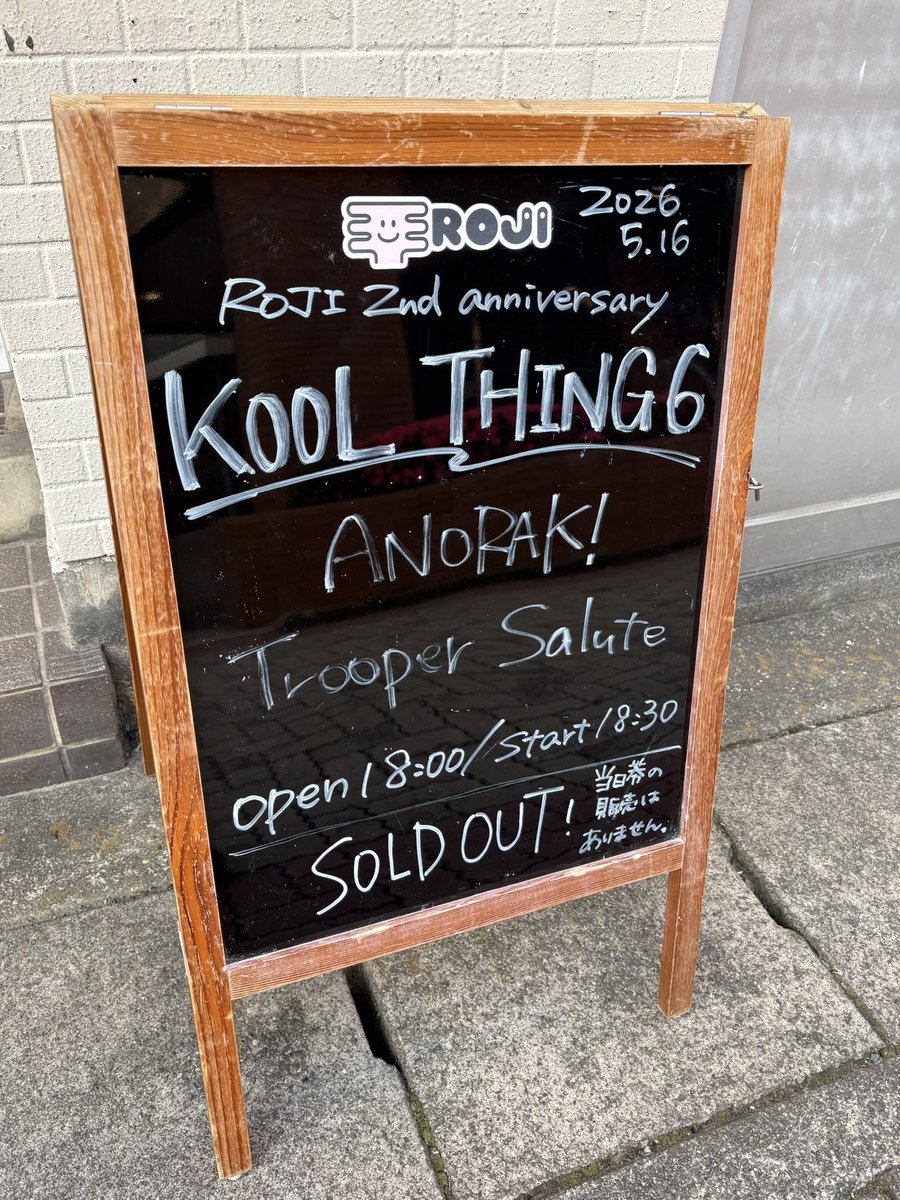 ROJI
2026
5.16
ROJI 2nd anniversary
KOOL THING6
ANORAK!
Trooper Salute
open18:00/start18:30
SOLD OUT!
当日券の
販売は
ありません。